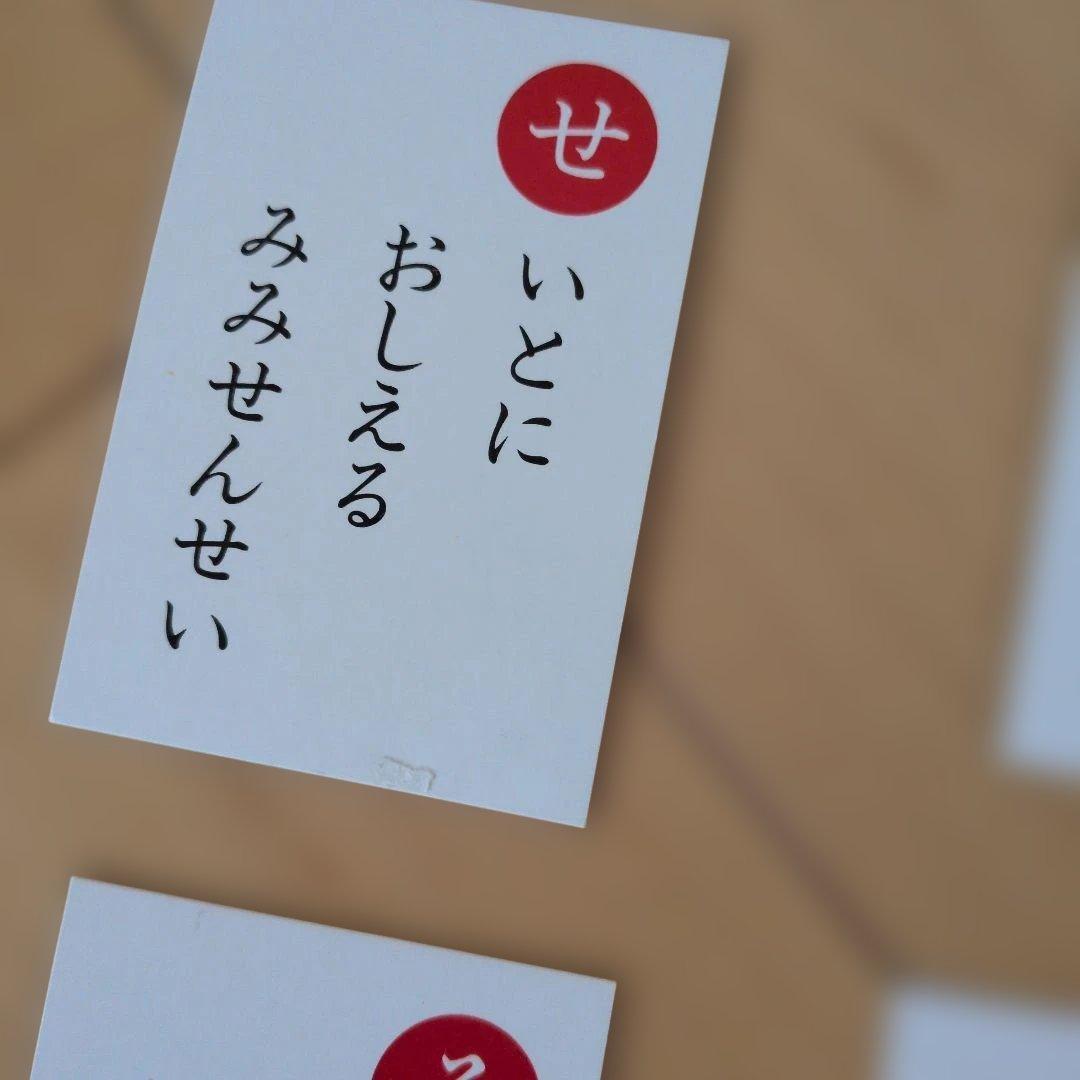 せ
いとに
おしえる
みみせんせい